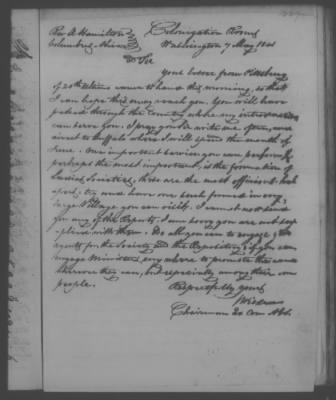 Rev A. Hamilton Colonization Rooms
Columbus Ohio Washington 7 May 1841
Dr Sir
Your letter from Pittsburg
of 20th Ultimo came to hand this morning, so that
I can hope this may reach you. You will have
passed through the Country where my introduction
can serve you. I pray you write me often, and
direct to Buffalo where I will spend the month of
June. One important service you can perform &
perhaps the most important, is the formation of
Societies, these are the most efficient
try and have one formed in every
large Village you can visit. I can not now send
for any of the Reports, I am sorry you are not sup
plied with them. Do all you can to engage
agents for the Society and the Repository, & if you can
engage Ministers any where to promote the cause
wherever they can, but especially among their own
people.
Respectfully yours
Chairman Ex Com